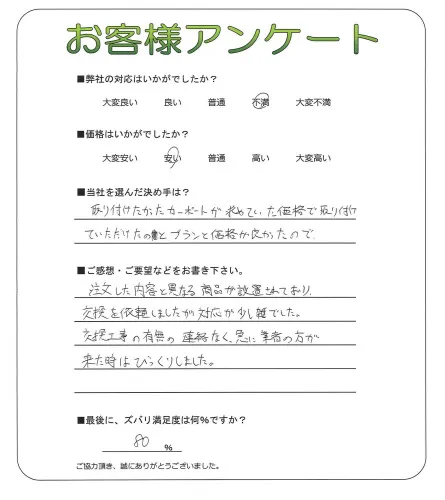 お客様アンケート
■弊社の対応はいかがでしたか?
大変良い 良い 普通 不満 大変不満
■価格はいかがでしたか?
大変安い 安い 普通 高い 大変高い
■当社を選んだ決め手は?
取り付けたかったカーポートが求めていた価格で取り付け
ていただけたのと プランと価格が良かったので
■ご感想・ご要望などをお書き下さい。
注文した内容と異なる商品が設置されており、
交換を依頼しましたが対応が少し雑でした。
交換工事の有無の連絡なく、急に業者の方が
来た時はびっくりしました。
■最後に、ズバリ満足度は何%ですか?
80 %
ご協力頂き、誠にありがとうございました。